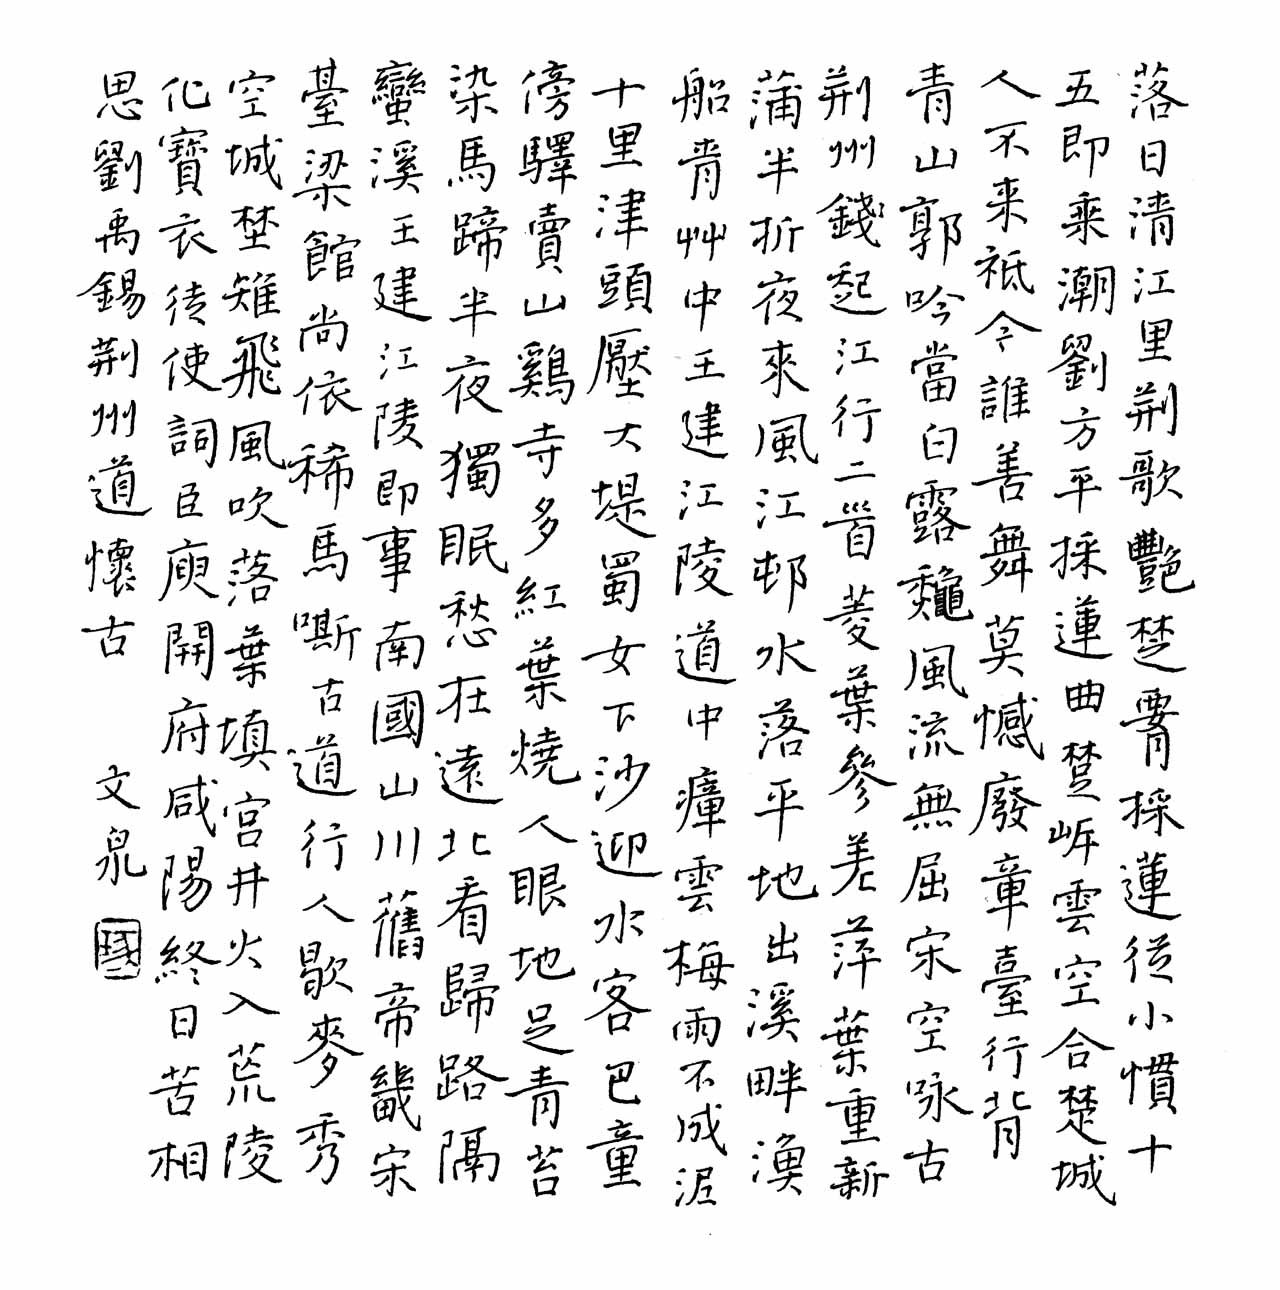 落日清江里荆歌艷楚腰採蓮從小慣十
五即乘潮劉方平採蓮曲楚岸雲空合楚城
人不来祗今誰善舞莫憾廢章臺行背
青山郭吟當白露龝風流無屈宋空咏古
荆州錢起江行二首菱葉參差萍葉重新
蒲半折夜來風江邨水落平地出溪畔漁
船青艸中王建江陵道中瘴雲梅雨不成泥
十里津頭壓大堤蜀女下沙迎水客巴童
傍驛賣山鷄寺多紅葉燒人眼地足青苔
染馬蹄半夜獨眠愁在遠北看歸路隔
蠻溪王建江陵即事南國山川舊帝畿宋
臺梁館尚依稀馬嘶古道行人歇麥秀
空城埜雉飛風吹落葉填宮井火入荒陵
化寶衣徒使詞臣庾開府咸陽終日苦相
思劉禹錫荆州道懷古 文泉